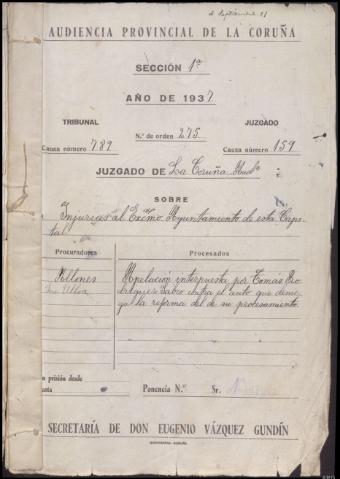 AUDIENCIA PROVINCIAL DE LA CORUÑA
SECCIÓN 1ª
AÑO DE 1937
TRIBUNAL
JUZGADO
Causa número 789
N.º de orden 275
Causa número 159
JUZGADO DE La Coruña
SOBRE
Injurias al Excmo Ayuntamiento de esta Capi-
tal
Procuradores
Procesados
Apelación interpuesta por Tomas Ro-
driguez Sabio contra el auto que denie-
ga la reforma del de su procesamiento
n prisión desde
Ponencia N.º
Sr.
SECRETARÍA DE DON EUGENIO VÁZQUEZ GUNDÍN